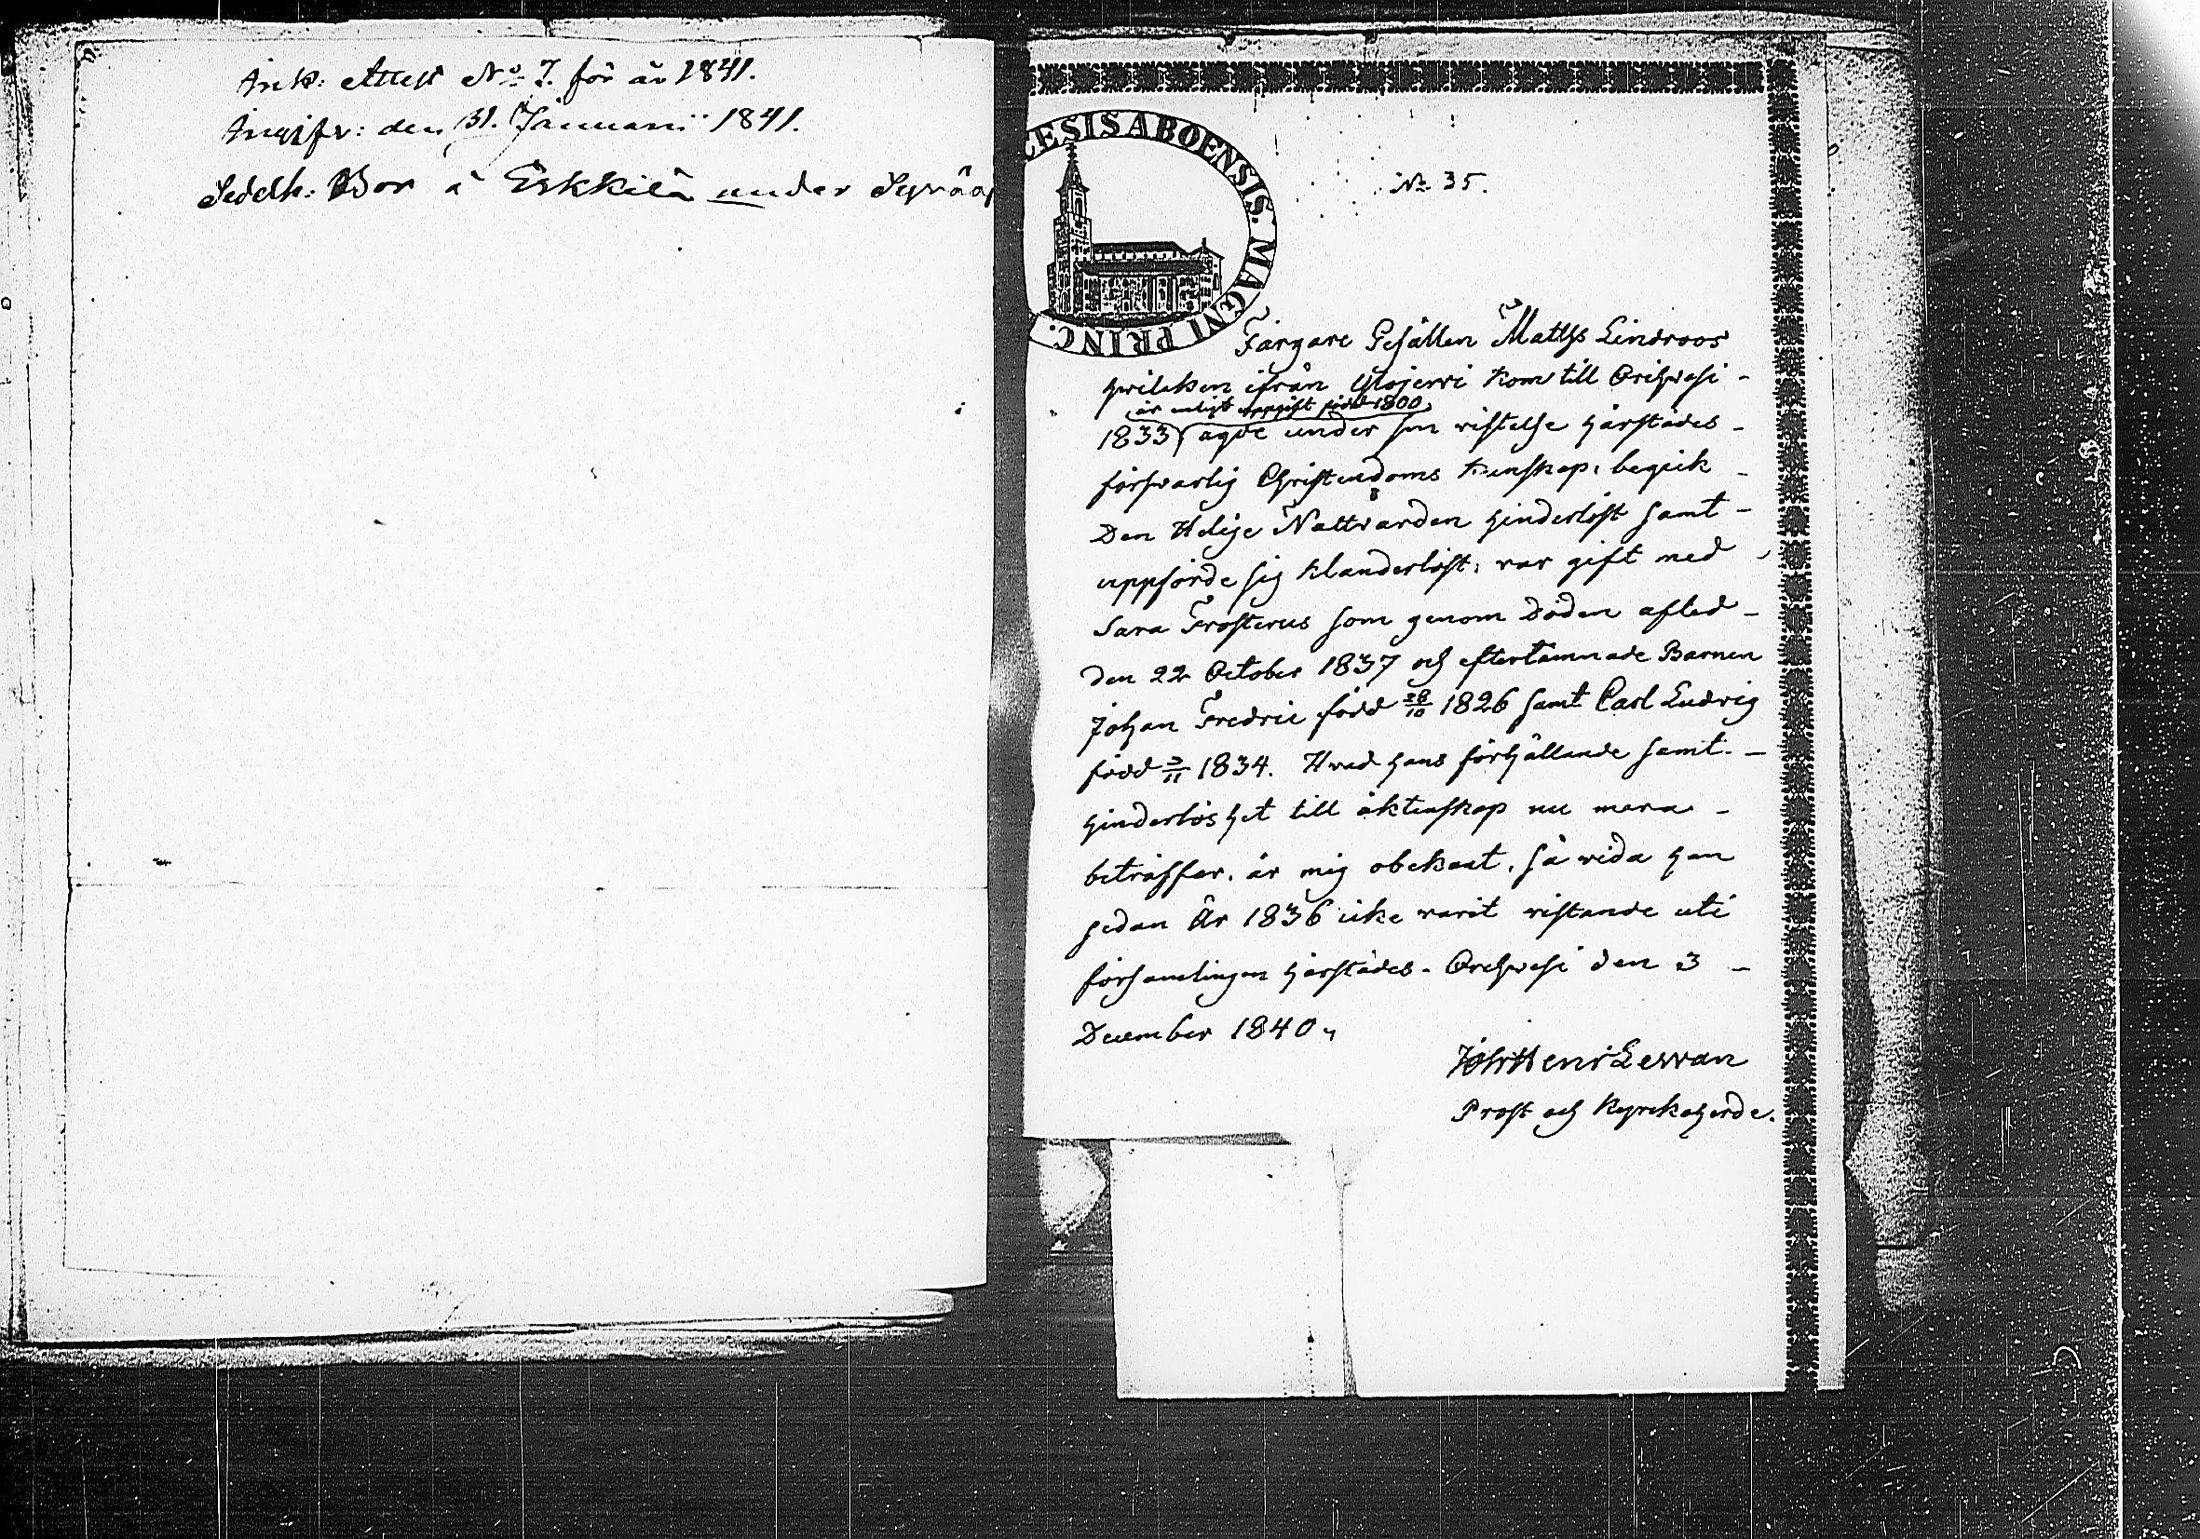 Ank: Attest No 7. för år 1841.
Angifv: den 31. Januarii 1841.
Bor å Erkkilä under
CESIS ABOENSIS. MAGNI PRINC.
No 35.
Färgare Gesällen Matths Lindroos
hvilcken ifrån Ylöjervi kom till Orihvesi -
är enligt uppgift född 1800
1833, ägde under sin vistelse härstädes -
försvarlig Christendoms kunskap, begick -
Den Helige Nattvarden hinderlöst samt -
uppförde sig klanderlöst, var gift med -
Sara Frosterus som genom Döden afled -
den 22 October 1837 och efterlämnade Barnen
Johan Fredric född 28/10 1826 samt Carl Ludvig
född 3/11 1834. Hvad hans förhållande samt -
hinderlöshet till äktenskap nu mera -
beträffar, är mig obekant, så vida han
sedan År 1836 icke varit vistande uti
församlingen härstädes. Orihvesi den 3 -
December 1840,
Joh: Henr Lewan
Prost och Kyrckoherde.